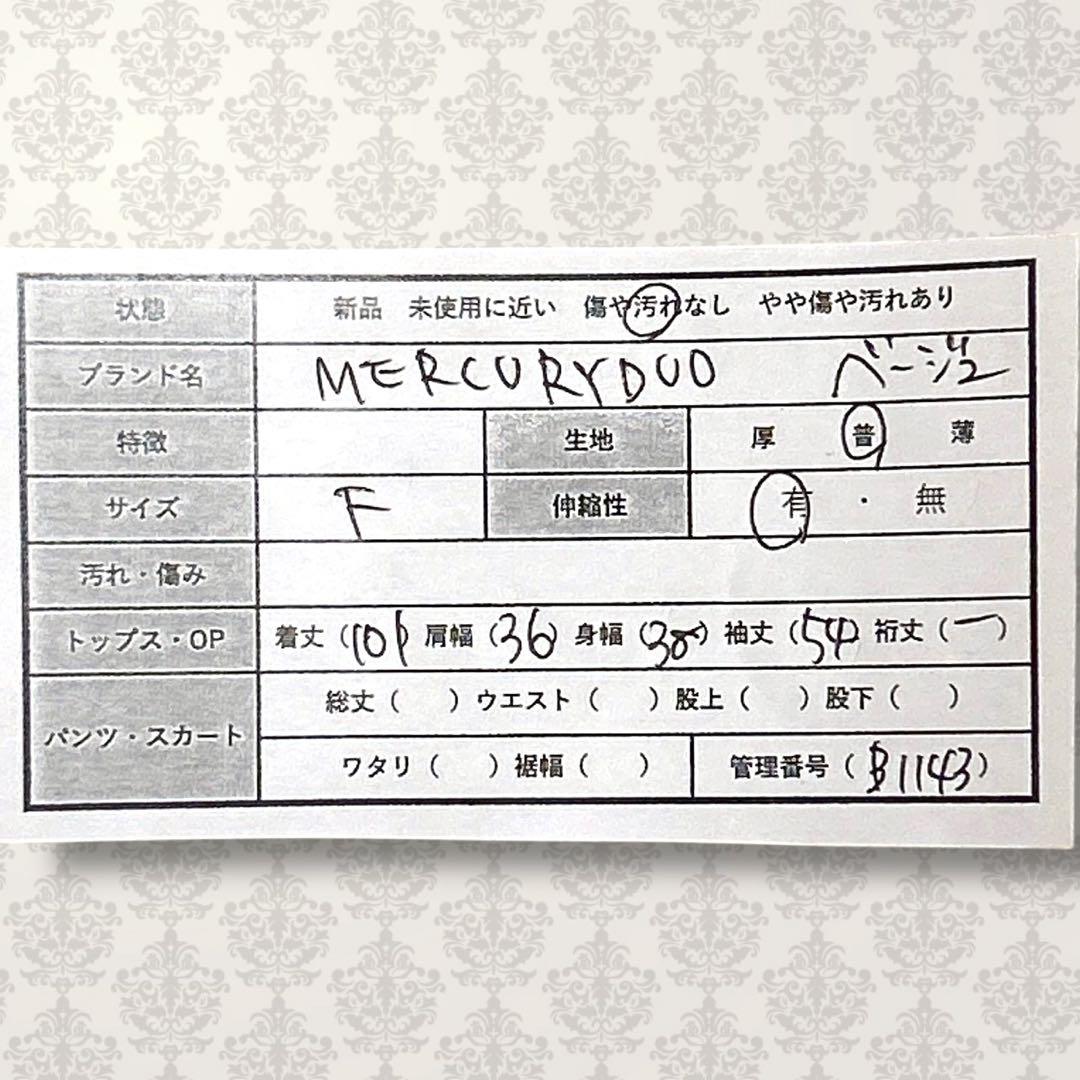 状態 新品 未使用に近い 傷や汚れなし やや傷や汚れあり
ブランド名 MERCURYDUO ベージュ
特徴 生地 厚 普 薄
サイズ F 伸縮性 有 ・ 無
汚れ・傷み
トップス・OP 着丈(101) 肩幅(36) 身幅(38) 袖丈(54) 裄丈(ー)
パンツ・スカート 総丈( ) ウエスト( ) 股上( ) 股下( )
ワタリ( ) 裾幅( ) 管理番号(B1143)